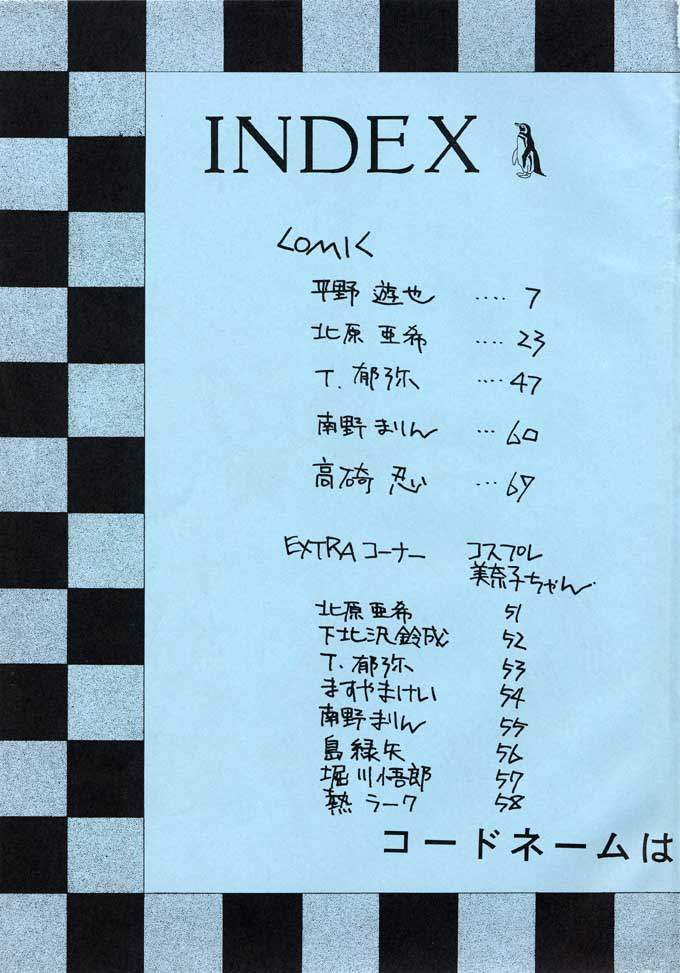 INDEX
COMIC
平野 遊也 ‥‥ 7
北原 亜希 ‥‥ 23
T. 郁弥 ‥‥ 47
南野 まりん … 60
高碕 忍 … 67
EXTRAコーナー コスプレ
美奈子ちゃん
北原 亜希 51
下北沢 鈴成 52
T. 郁弥 53
ますやまけい 54
南野 まりん 55
島 緑矢 56
堀川 悟郎 57
熱 ラーク 58
コードネームは